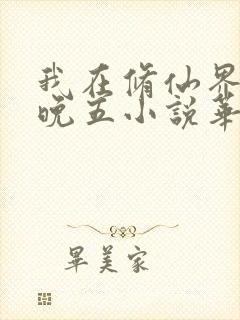 我在脩仙界
晚五小説華
畢美家